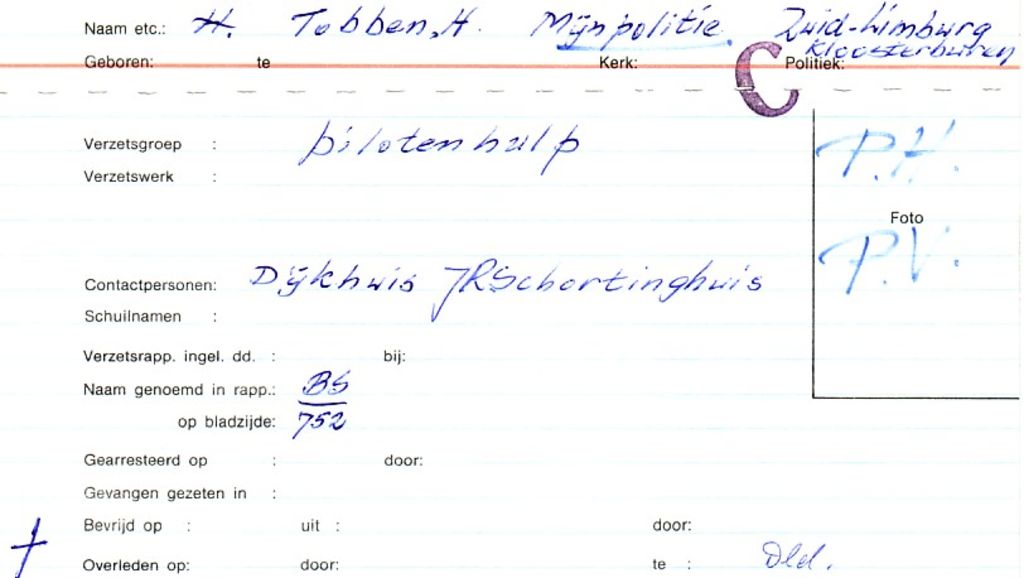 Naam etc.: H. Tobben, H. Mijnpolitie. Zuid-Limburg
Kloosterburen
Geboren: te Kerk: Politiek:
C
Verzetsgroep : pilotenhulp
P.H.
Verzetswerk :
Foto
P.V.
Contactpersonen: Dijkhuis JRSchortinghuis
Schuilnamen :
Verzetsrapp. ingel. dd. : bij:
Naam genoemd in rapp.: BS
op bladzijde: 752
Gearresteerd op : door:
Gevangen gezeten in :
Bevrijd op : uit : door:
† Overleden op: door: te : Dld.